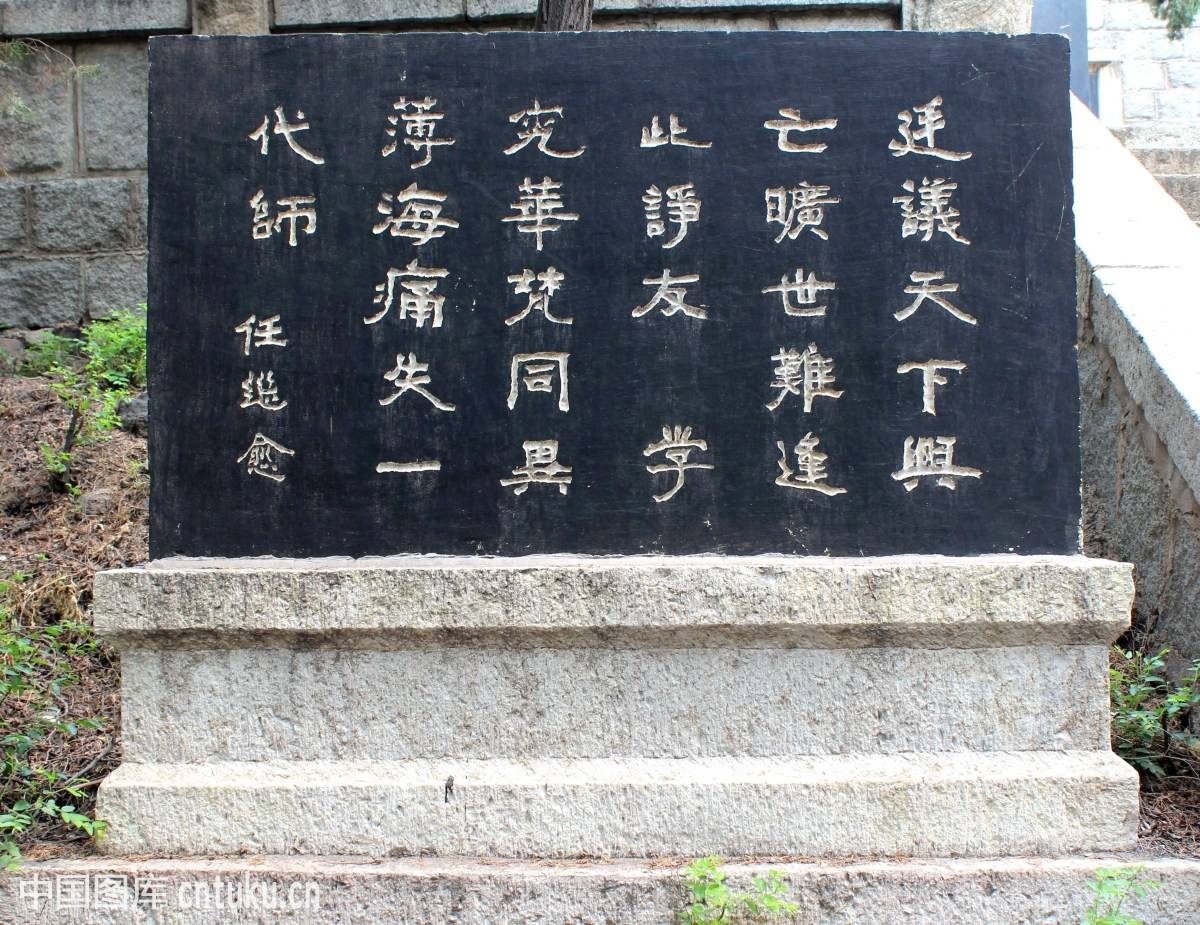 廷議天下興
亡曠世難逢
此諍友 学
究華梵同異
薄海痛失一
代師 任继愈
中国图库 cntuku.cn